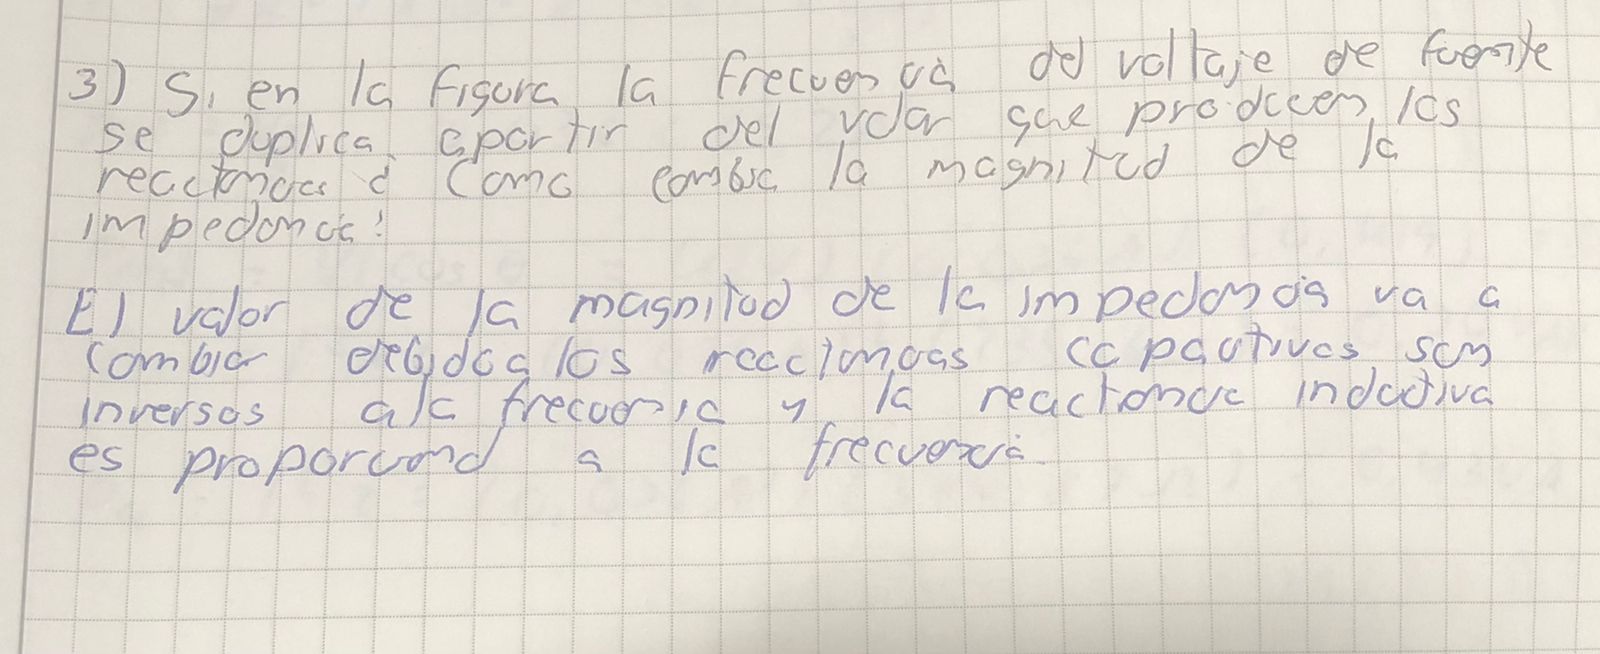 3) Si en la figura la frecuencia del voltaje de fuente
se duplica apartir del valor que producen las
reactancias ¿ Como cambia la magnitud de la
impedancia?
El valor de la magnitud de la impedancia va a
cambiar debidoa las reactancias capacitivas son
inversas ala frecuencia y la reactancia inductiva
es proporcional a la frecuencia.